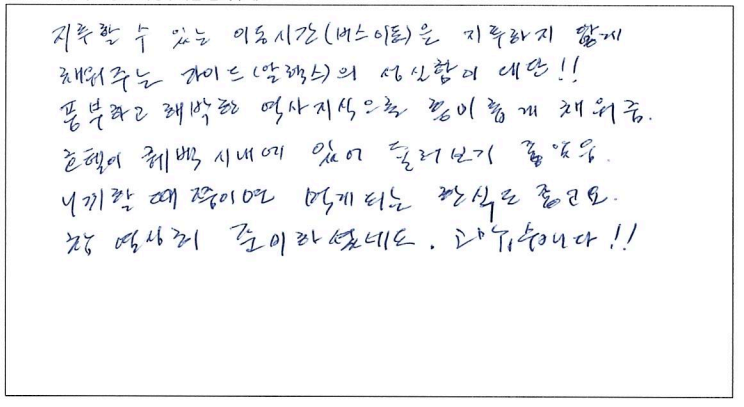 지루할 수 있는 이동시간(버스이동)은 지루하지 않게
채워주는 가이드(알렉스)의 성실함이 대단!!
풍부하고 해박한 역사지식으로 흥미롭게 채워줌.
호텔이 퀘벡 시내에 있어 둘러보기 좋았음.
니끼할 때쯤이면 먹게되는 한식도 좋고요.
참 열심히 준비하셨네요. 고맙습니다!!